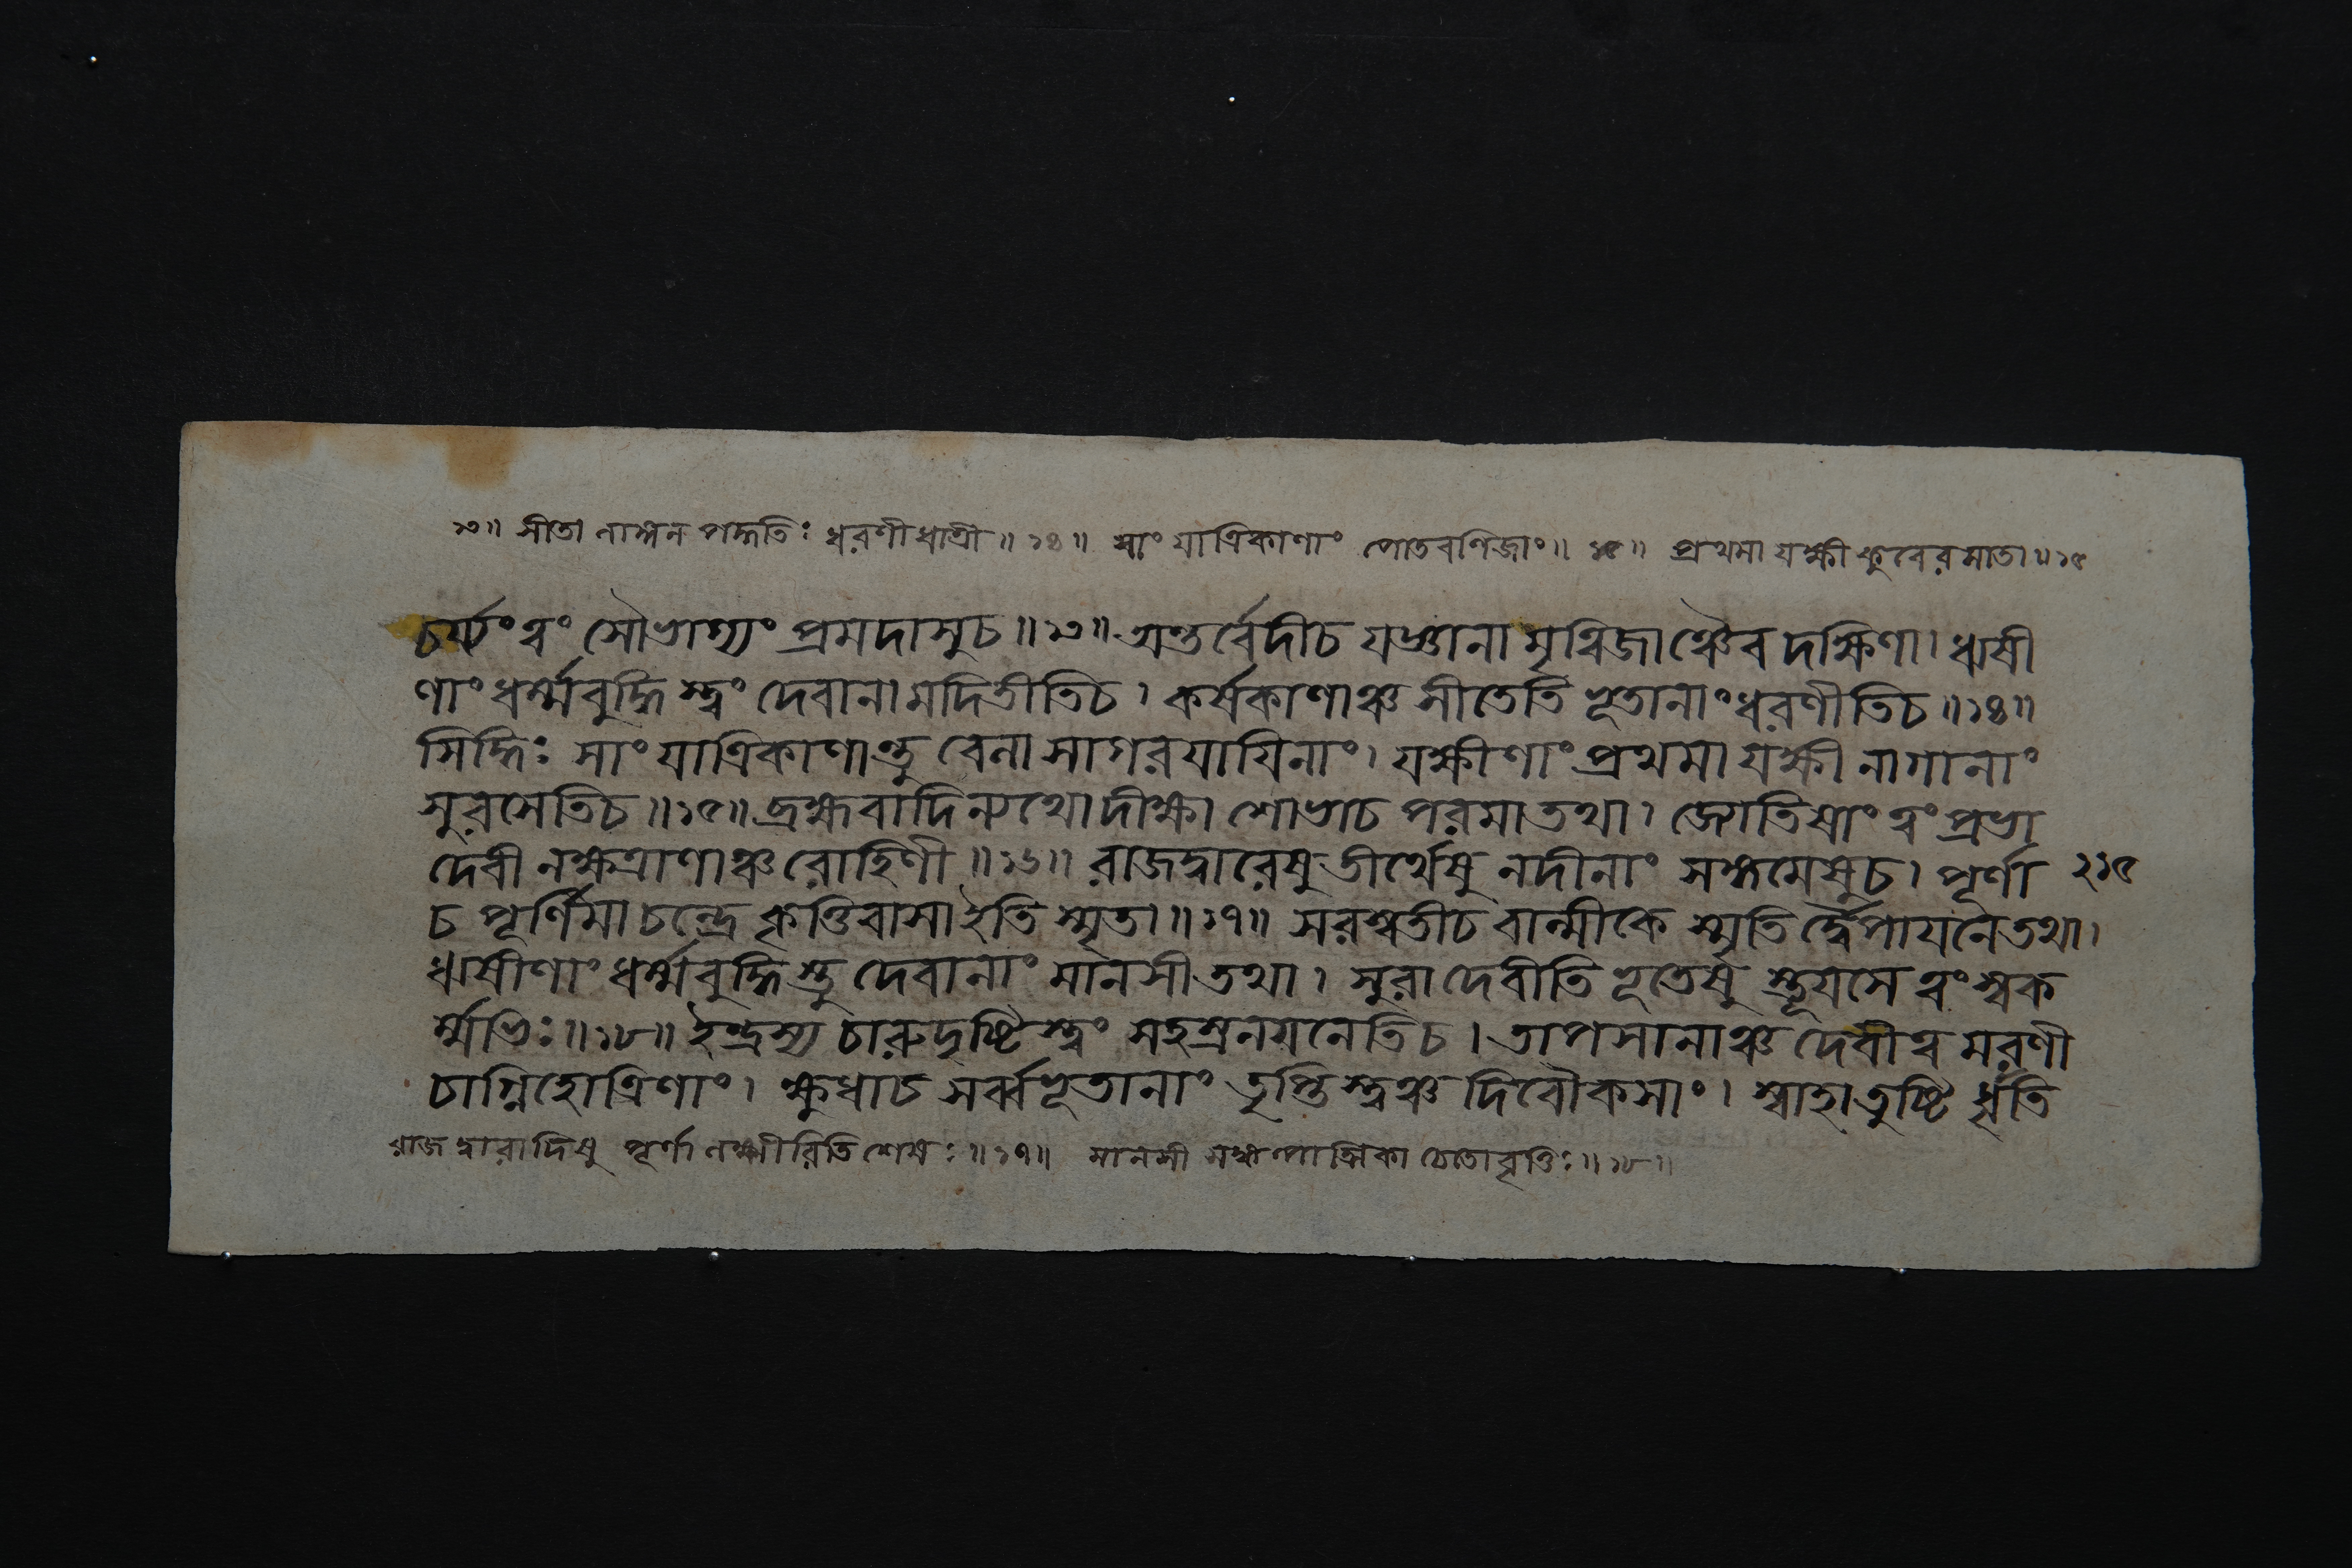 ১৩॥ সীতা লাঙ্গল পদ্ধতিঃ ধরণী ধাত্রী॥ ১৪॥ সাং যাত্রিকাণাং পোতবণিজাং॥ ১৫॥ প্রথমা যক্ষী কুবেরমাতা॥ ১৫
চর্য্যং ত্বং সৌভাগ্যং প্রমদাসুচ॥ ১৩॥ অন্তর্ব্বেদীচ যজ্ঞানা মৃত্বিজাঞ্চৈব দক্ষিণা। ঋষী
ণাং ধর্ম্মবুদ্ধি স্ত্বং দেবানামদিতীতিচ। কর্ষকাণাঞ্চ সীতেতি ভূতানাং ধরণীতিচ॥ ১৪॥
সিদ্ধিঃ সাং যাত্রিকাণান্তু বেলা সাগরযায়িনাং। যক্ষীণাং প্রথমা যক্ষী নাগানাং
সুরসেতিচ॥ ১৫॥ ব্রহ্মবাদিন্যথো দীক্ষা শোভাচ পরমা তথা। জ্যোতিষাং ত্বং প্রভা
দেবী নক্ষত্রাণাঞ্চ রোহিণী॥ ১৬॥ রাজদ্বারেষু তীর্থেষু নদীনাং সঙ্গমেষুচ। পূর্ণা ২১৫
চ পূর্ণিমা চন্দ্রে কৃত্তিবাসা ইতি স্মৃতা॥ ১৭॥ সরস্বতীচ বাল্মীকে স্মৃতি র্দ্বৈপায়নে তথা।
ঋষীণাং ধর্ম্মবুদ্ধি স্তু দেবানাং মানসী তথা। সুরা দেবীতি ভূতেষু স্তূয়সে ত্বং স্বক
র্ম্মভিঃ॥ ১৮॥ ইন্দ্রস্য চারুদৃষ্টি স্ত্বং সহস্রনয়নেতিচ। তাপসানাঞ্চ দেবী ত্ব মরণী
চাগ্নিহোত্রিণাং। ক্ষুধাচ সর্ব্বভূতানাং তৃপ্তি স্ত্বঞ্চ দিবৌকসাং। স্বাহা তুষ্টি র্ধৃতি
রাজদ্বারাদিষু পূর্ণা লক্ষ্মীরিতি শেষঃ॥ ১৭॥ মানসী চেতোবৃত্তিঃ॥ ১৮॥